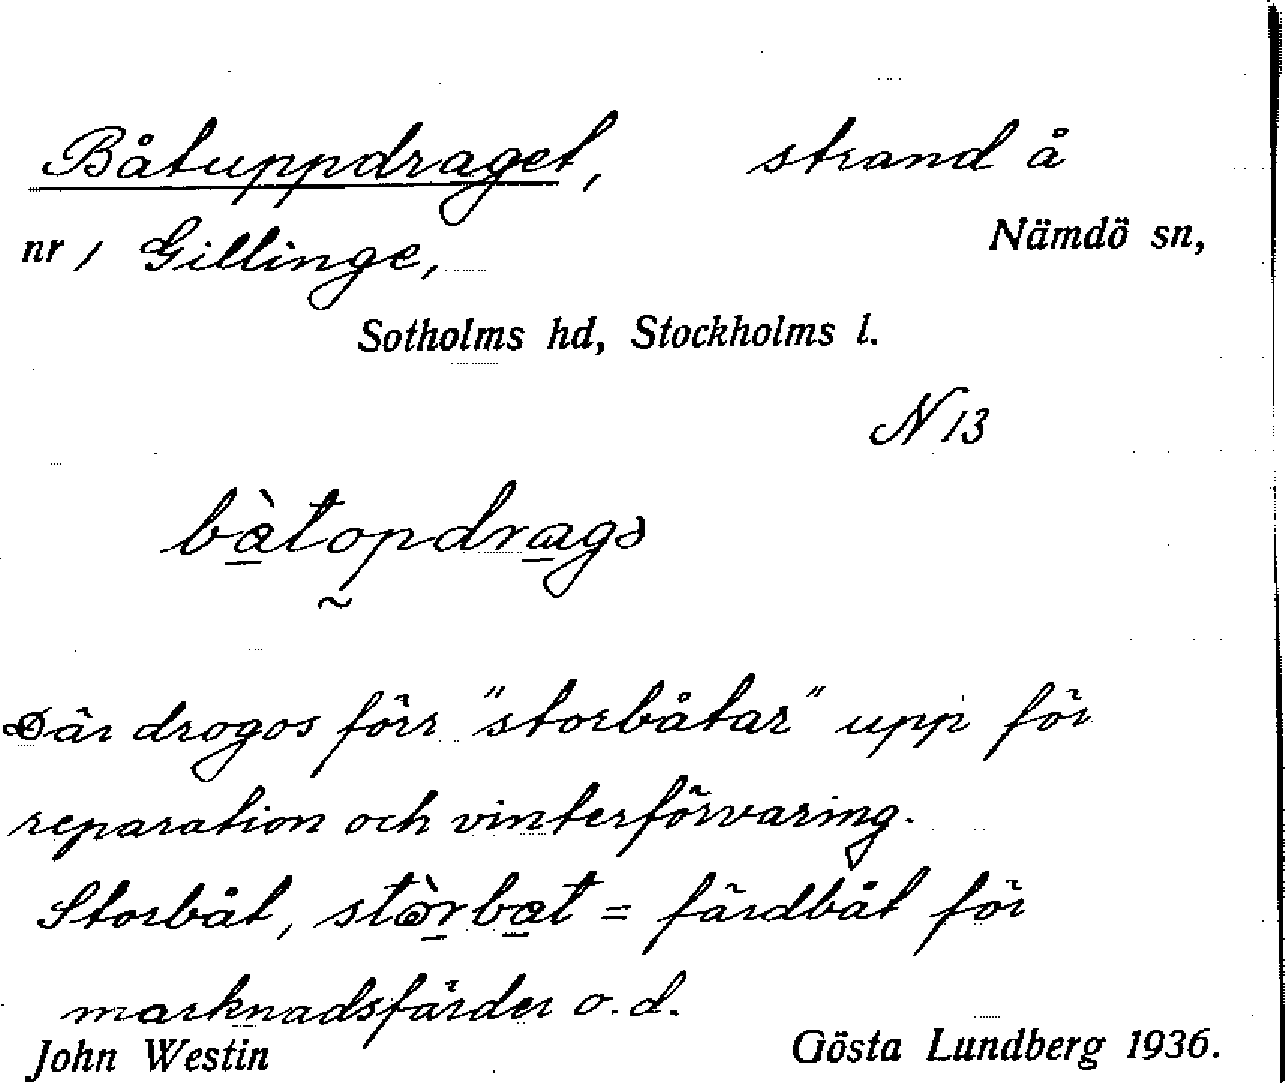 Båtuppdraget, strand å
nr 1 Gillinge, Nämdö sn,
Sotholms hd, Stockholms l.
N 13
bàtopdragə
Där drogos förr "storbåtar" upp för
reparation och vinterförvaring.
Storbåt, stòrbat = färdbåt för
marknadsfärder o. d.
John Westin Gösta Lundberg 1936.